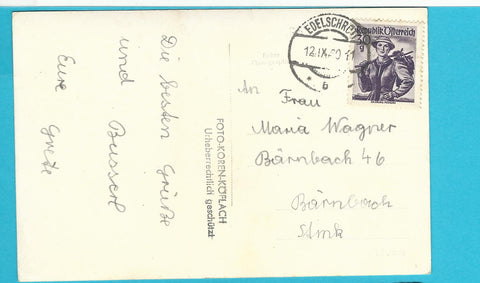 Die besten Grüße
und Busserl
Eure Grete
FOTO-KOREN-KÖFLACH
Urheberrechtlich geschützt
EDELSCHROTT
12.IX.
b
Republik Österreich
An Frau
Maria Wagner
Bärnbach 46
Bärnbach
Stmk